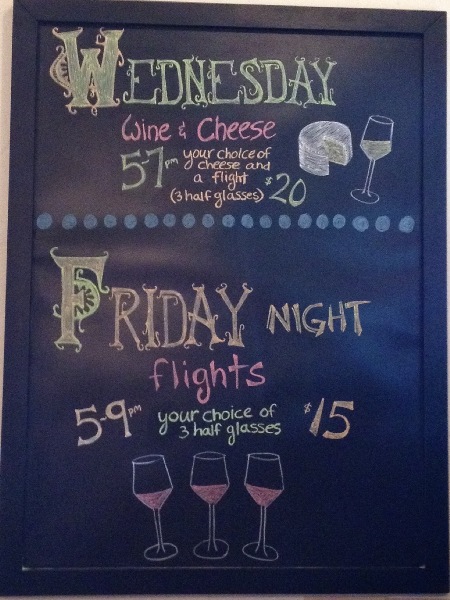 WEDNESDAY
Wine & Cheese
5-7pm your choice of
cheese and
a flight
(3 half glasses) $20
FRIDAY NIGHT
flights
5-9pm your choice of
3 half glasses $15